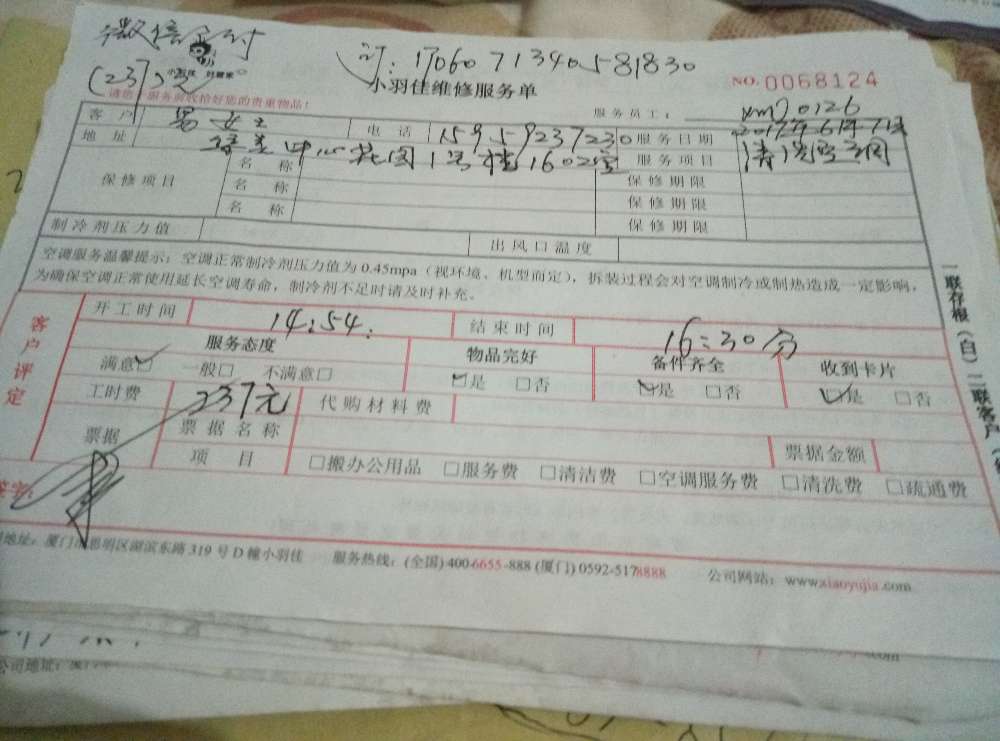 微信支付
(237)元
订:1706071340581830
小羽佳维修服务单
NO.0068124
请您在服务前收拾好您的贵重物品!
服务员工: xm20126
客户 电话 15959237230 服务日期 2017年6月7日
地址 中心花园1号楼1602室 服务项目 清洗空调
保修项目 名称 保修期限
名称 保修期限
名称 保修期限
制冷剂压力值 出风口温度
空调服务温馨提示:空调正常制冷剂压力值为0.45mpa(视环境、机型而定),拆装过程会对空调制冷或制热造成一定影响,
为确保空调正常使用延长空调寿命,制冷剂不足时请及时补充。
客户评定
开工时间 14:54. 结束时间 16:30分
服务态度 物品完好 备件齐全 收到卡片
满意☑ 一般□ 不满意□ ☑是 □否 ☑是 □否 ☑是 □否
工时费 237元 代购材料费
票据 票据名称 票据金额
项目 □搬办公用品 □服务费 □清洁费 □空调服务费 □清洗费 □疏通费
签字:
地址:厦门市思明区湖滨东路319号D幢小羽佳 服务热线:(全国)400-6655-888(厦门)0592-5178888 公司网站:www.xiaoyujia.com
一联存根(白)二联客户
公司地址:厦门
.com